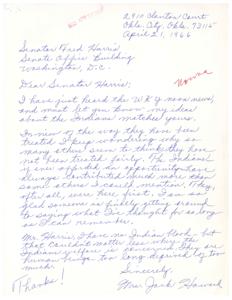 2910 Clanton Court
Okla. City, Okla. 73115
April 21, 1966
Senator Fred Harris
Senate Office Building
Washington, D.C.
Dear Senator Harris:
I have just heard the WKY noon news,
and must let you know my idea
about the Indians matches yours.
In view of the way they have been
treated I keep wondering why so
many others seem to think they have
not been treated fairly. The Indians
if ever afforded an opportunity have
always contributed much more than
some others I could mention. They,
after all, were here first. I am so
glad someone is finally getting around
to saying what I've thought for so long
as I can remember.
Mr. Harris, I have no Indian blood, but
that couldn't matter less where the
Indians' welfare is concerned. They are
human beings too long deprived by too
much.
Sincerely,
Mrs. Jack Howard
Thanks!